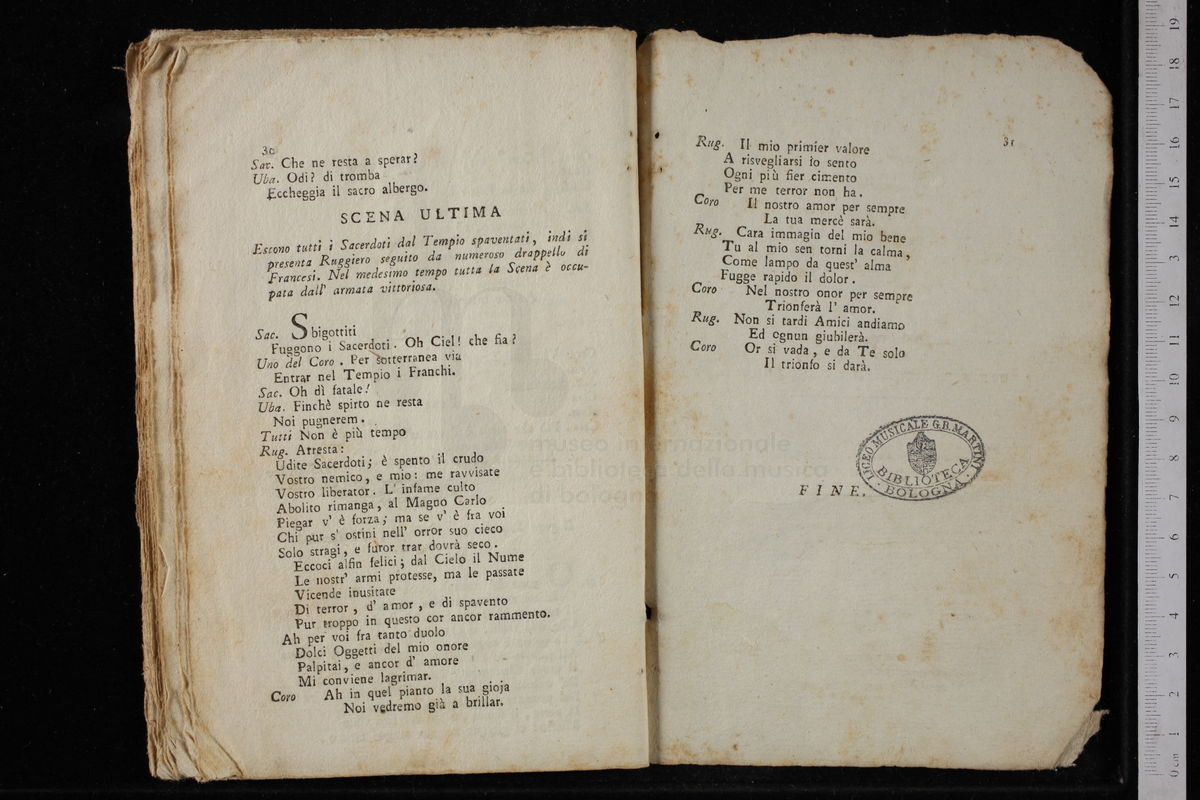 30
Sac. Che ne resta a sperar?
Uba. Odi? di tromba
Eccheggia il sacro albergo.
SCENA ULTIMA
Escono tutti i Sacerdoti dal Tempio spaventati, indi si
presenta Ruggiero seguito da numeroso drappello di
Francesi. Nel medesimo tempo tutta la Scena è occu-
pata dall' armata vittoriosa.
Sac. Sbigottiti
Fuggono i Sacerdoti. Oh Ciel! che fia?
Uno del Coro. Per sotterranea via
Entrar nel Tempio i Franchi.
Sac. Oh dì fatale!
Uba. Finchè spirto ne resta
Noi pugnerem.
Tutti Non è più tempo
Rug. Arresta:
Udite Sacerdoti; è spento il crudo
Vostro nemico, e mio: me ravvisate
Vostro liberator. L' infame culto
Abolito rimanga, al Magno Carlo
Piegar v' è forza; ma se v' è fra voi
Chi pur s' ostini nell' orror suo cieco
Solo stragi, e furor trar dovrà seco.
Eccoci alfin felici; dal Cielo il Nume
Le nostr' armi protesse, ma le passate
Vicende inusitate
Di terror, d' amor, e di spavento
Pur troppo in questo cor ancor rammento.
Ah per voi fra tanto duolo
Dolci Oggetti del mio onore
Palpitai, e ancor d' amore
Mi conviene lagrimar.
Coro Ah in quel pianto la sua gioja
Noi vedremo già a brillar.
31
Rug. Il mio primier valore
A risvegliarsi io sento
Ogni più fier cimento
Per me terror non ha.
Coro Il nostro amor per sempre
La tua mercè sarà.
Rug. Cara immagin del mio bene
Tu al mio sen torni la calma,
Come lampo da quest' alma
Fugge rapido il dolor.
Coro Nel nostro onor per sempre
Trionferà l' amor.
Rug. Non si tardi Amici andiamo
Ed ognun giubilerà.
Coro Or si vada, e da Te solo
Il trionfo si darà.
FINE.
LICEO MUSICALE G.B. MARTINI
BIBLIOTECA
BOLOGNA
museo internazionale
e biblioteca della musica
di bologna
0 cm 1 2 3 4 5 6 7 8 9 10 11 12 13 14 15 16 17 18 19